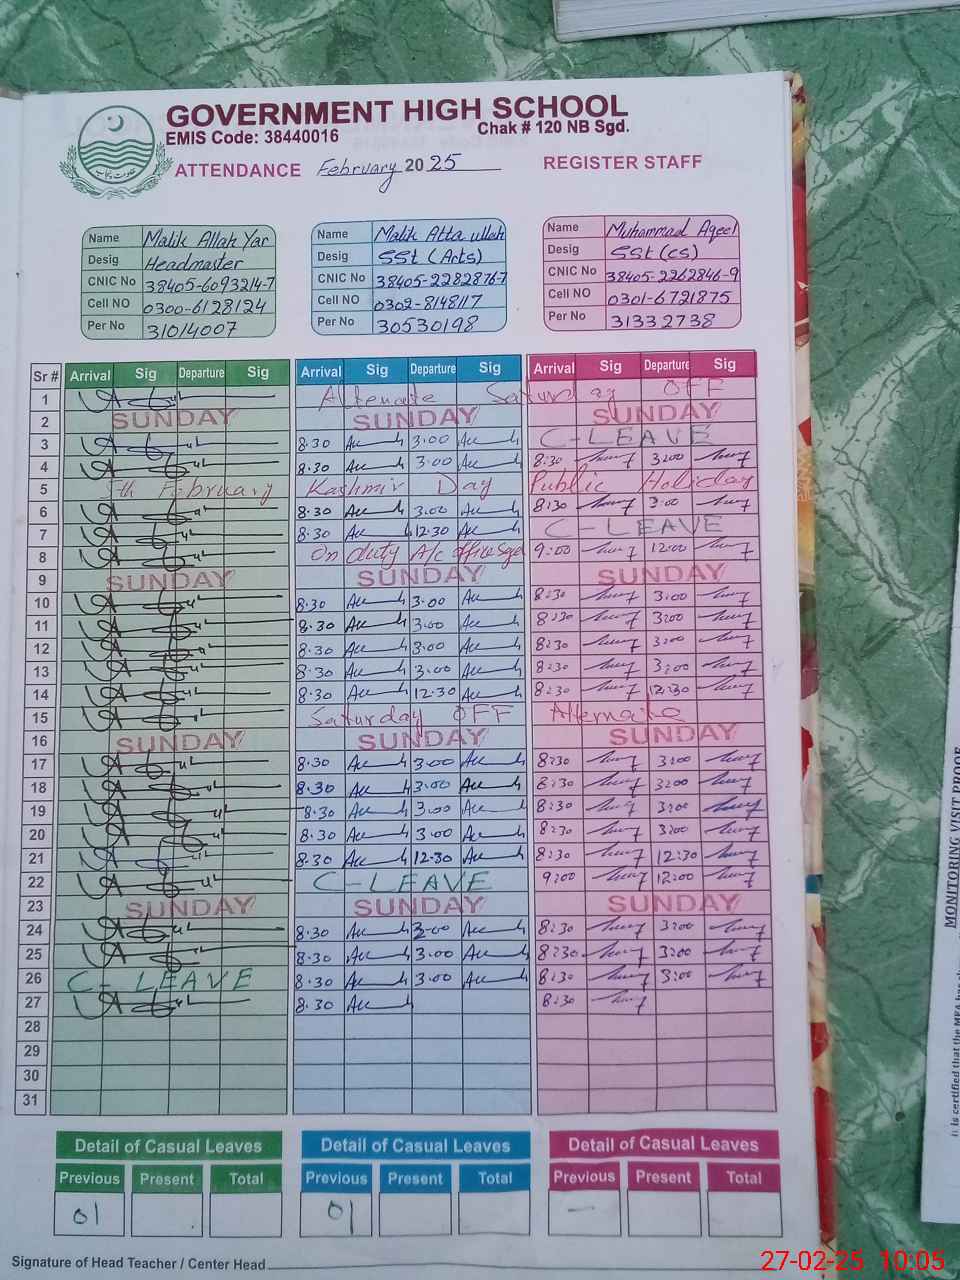 GOVERNMENT HIGH SCHOOL
EMIS Code: 38440016 Chak # 120 NB Sgd.
ATTENDANCE February 2025 REGISTER STAFF
Name Malik Allah Yar Name Malik Atta ullah Name Muhammad Aqeel
Desig Headmaster Desig SSt (Arts) Desig SSt (CS)
CNIC No 38405-6093214-7 CNIC No 38405-2282876-7 CNIC No 38405-2262846-9
Cell NO 0300-6128124 Cell NO 0302-8148117 Cell NO 0301-6721875
Per No 31014007 Per No 30530198 Per No 31332738
Sr # Arrival Sig Departure Sig Arrival Sig Departure Sig Arrival Sig Departure Sig
1 Alternate Saturday OFF
2 SUNDAY SUNDAY SUNDAY
3 8.30 3.00 C-LEAVE
4 8.30 3.00 8:30 3:00
5 5th February Kashmir Day Public Holiday
6 8.30 3.00 8:30 3:00
7 8.30 12.30 C-LEAVE
8 On duty A/c office Sgd 9:00 12:00
9 SUNDAY SUNDAY SUNDAY
10 8.30 3.00 8:30 3:00
11 8.30 3.00 8:30 3:00
12 8.30 3.00 8:30 3:00
13 8.30 3.00 8:30 3:00
14 8.30 12.30 8:30 12:30
15 Saturday OFF Alternate
16 SUNDAY SUNDAY SUNDAY
17 8.30 3.00 8:30 3:00
18 8.30 3.00 8:30 3:00
19 8.30 3.00 8:30 3:00
20 8.30 3.00 8:30 3:00
21 8.30 12.30 8:30 12:30
22 C-LEAVE 9:00 12:00
23 SUNDAY SUNDAY SUNDAY
24 8.30 3.00 8:30 3:00
25 8.30 3.00 8:30 3:00
26 C-LEAVE 8.30 3.00 8:30 3:00
27 8.30 8:30
28
29
30
31
Detail of Casual Leaves Detail of Casual Leaves Detail of Casual Leaves
Previous Present Total Previous Present Total Previous Present Total
01 01 -
Signature of Head Teacher / Center Head
MONITORING VISIT PROOF
27-02-25 10:05